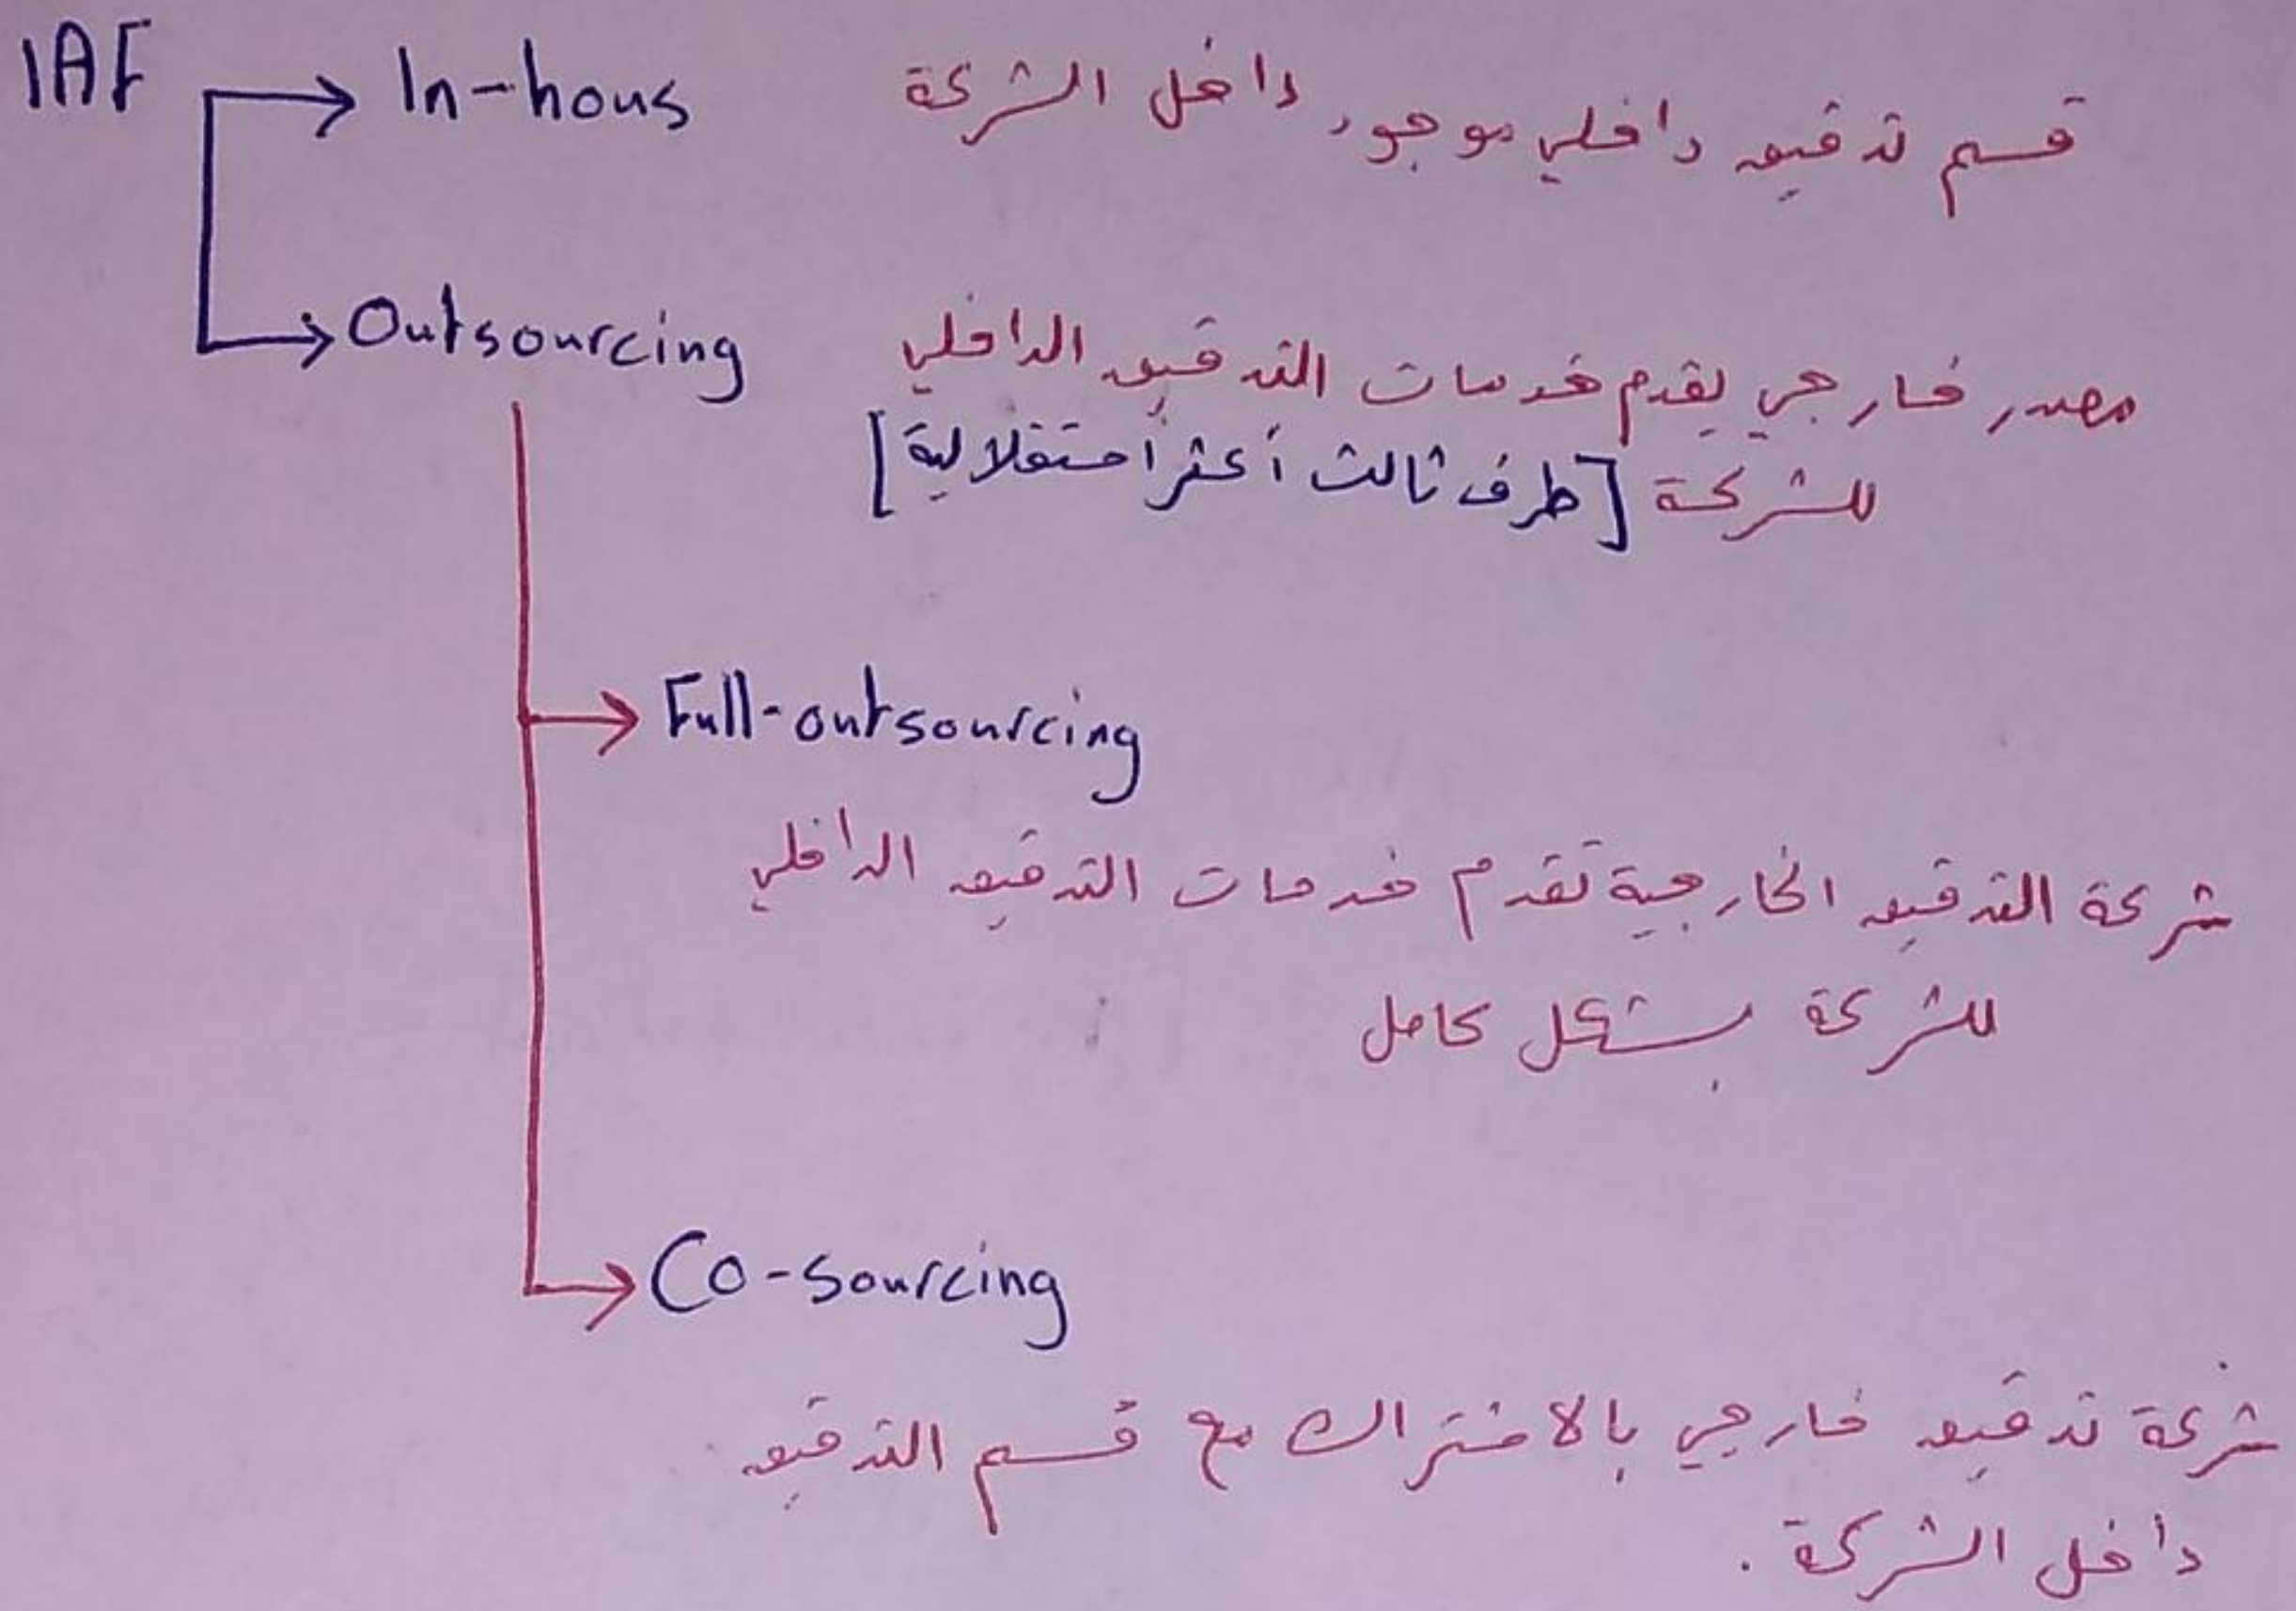 IAF
In-hous
قسم تدقيق داخلي موجود داخل الشركة
Outsourcing
مصدر خارجي يقدم خدمات التدقيق الداخلي
للشركة [طرف ثالث أكثر استقلالية]
Full-outsourcing
شركة التدقيق الخارجية تقدم خدمات التدقيق الداخلي
للشركة بشكل كامل
Co-sourcing
شركة تدقيق خارجي بالاشتراك مع قسم التدقيق
داخل الشركة .